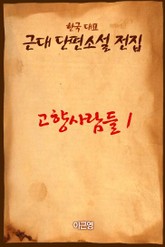 한국 대표
근대 단편소설 전집
고향사람들 1
이근영